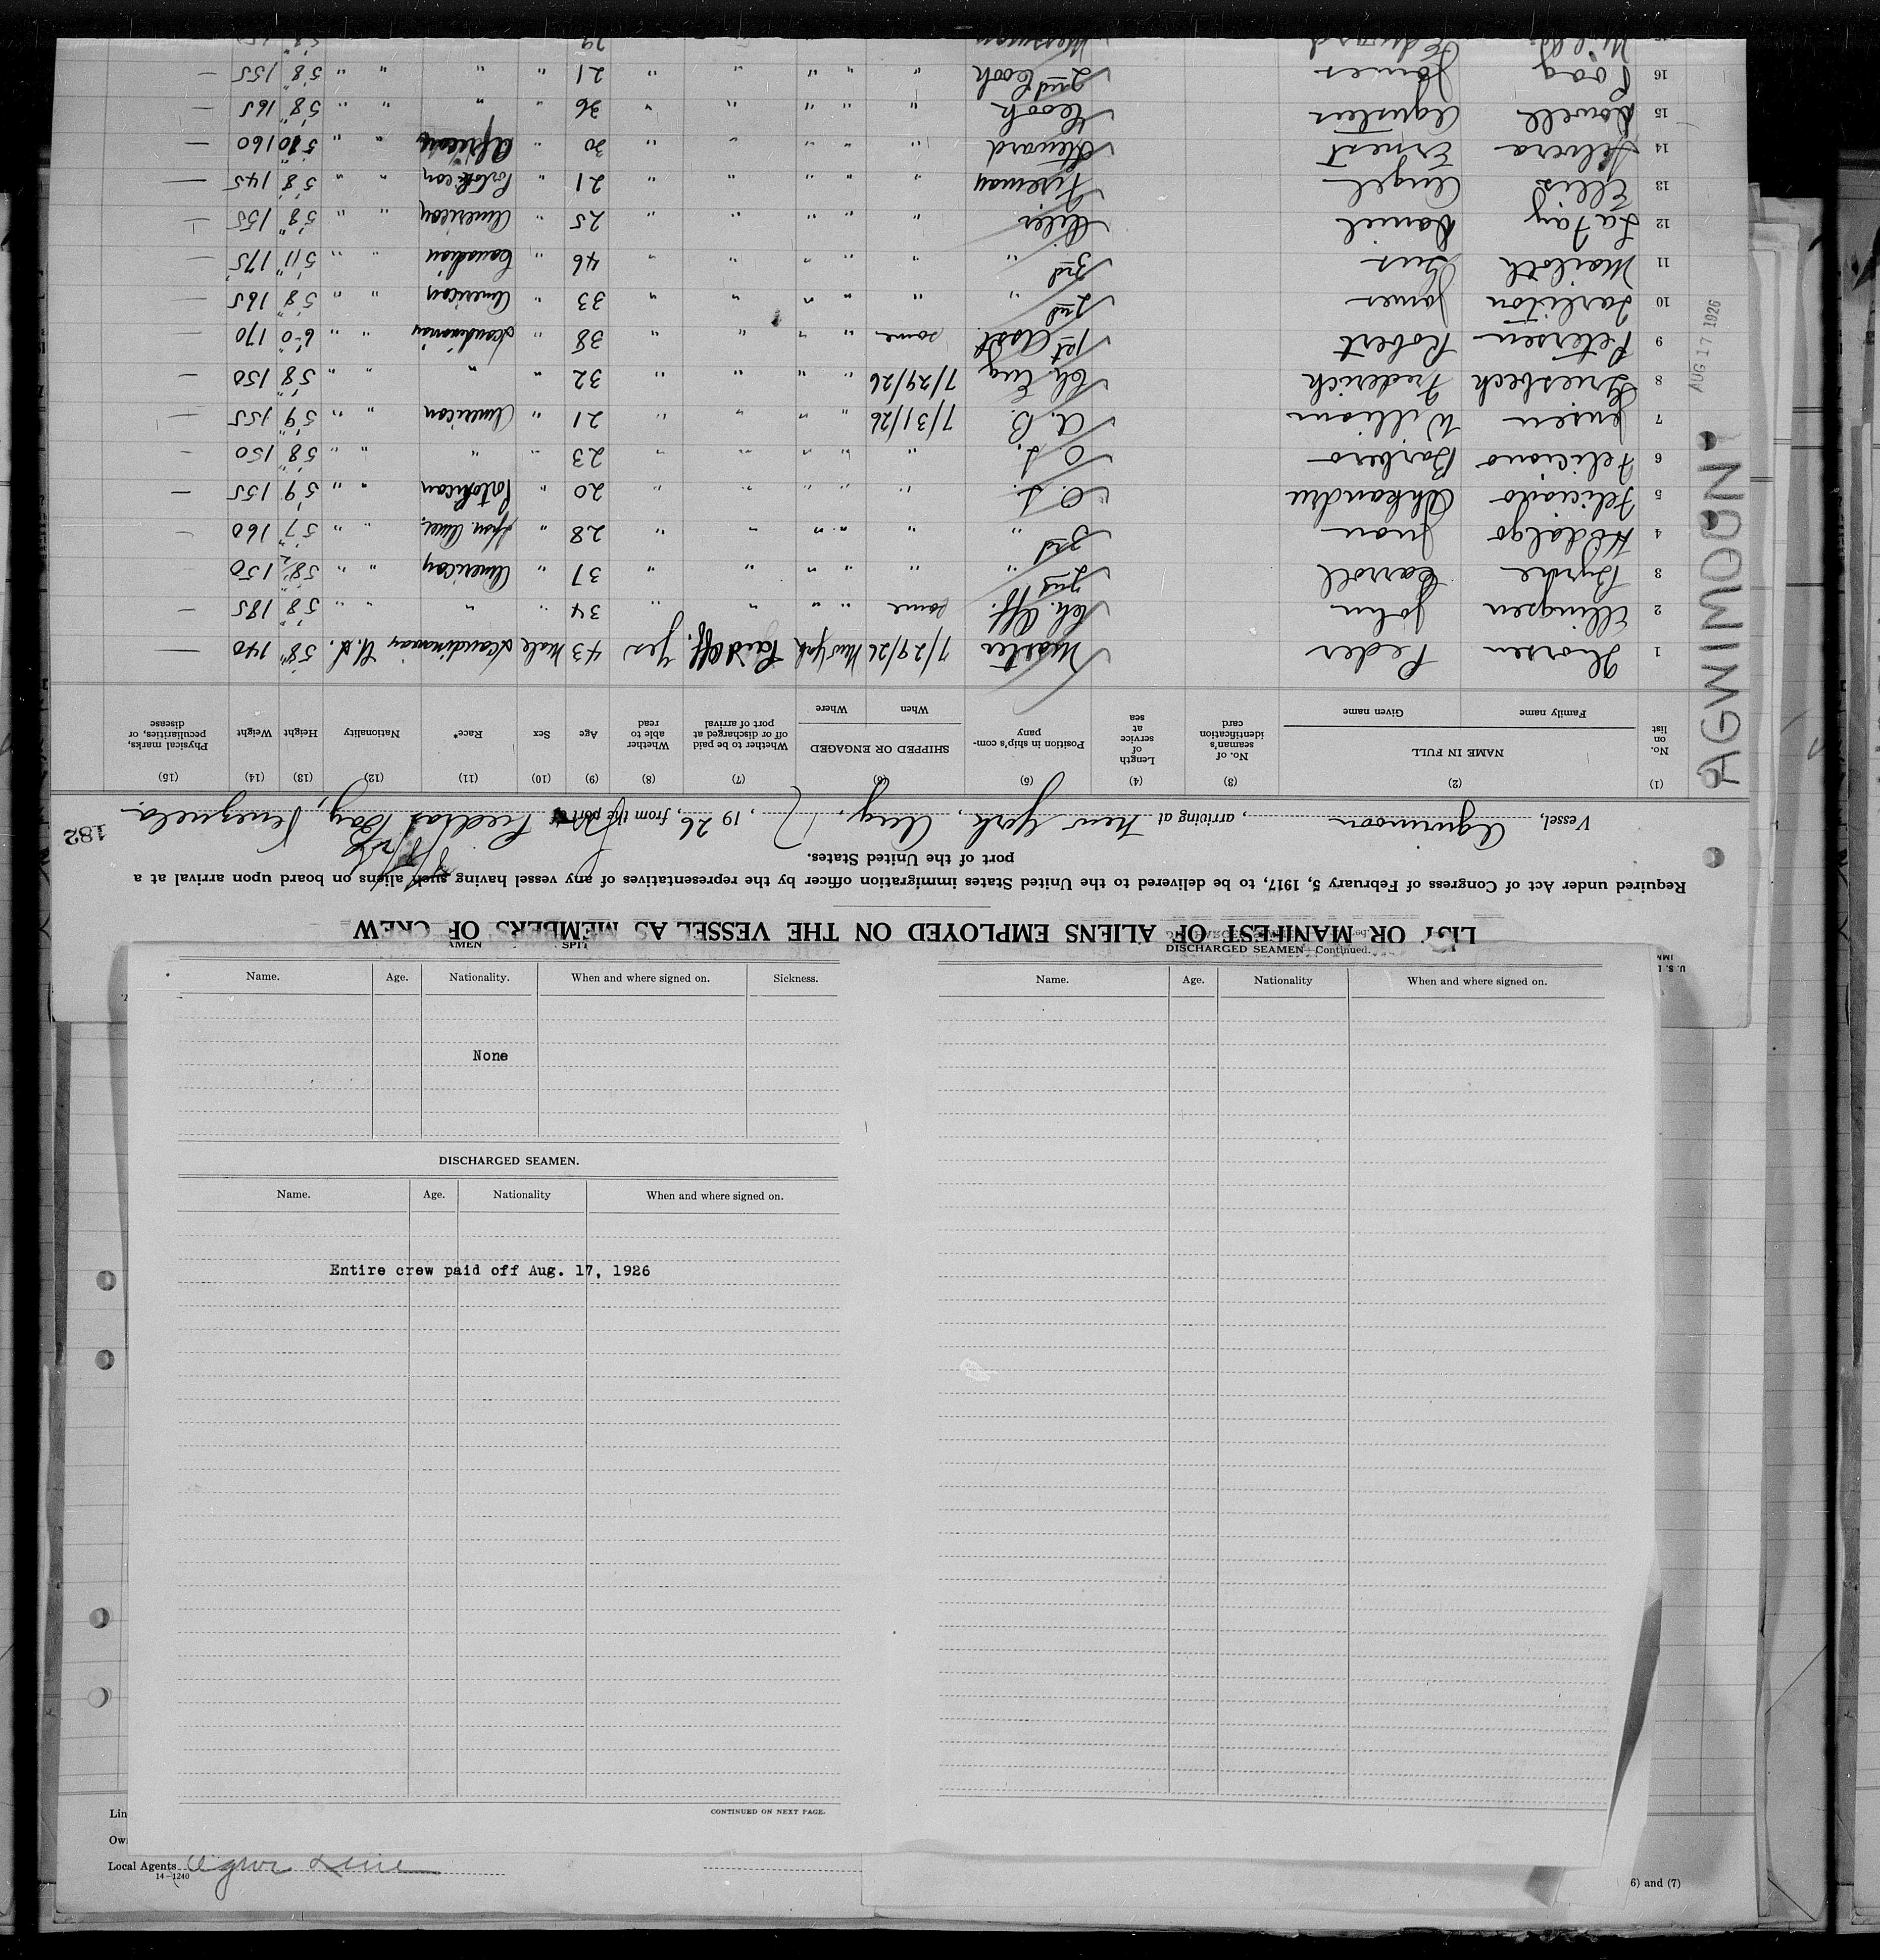 LIST OR MANIFEST OF ALIENS EMPLOYED ON THE VESSEL AS MEMBERS OF CREW
Required under Act of Congress of February 5, 1917, to be delivered to the United States immigration officer by the representatives of any vessel having such aliens on board upon arrival at a
port of the United States.
182
Vessel, Agwimoon, arriving at New York, Aug. 1926, from the port of Piedras Bay, Venezuela
(1) (2) (3) (4) (5) (6) (7) (8) (9) (10) (11) (12) (13) (14) (15)
No. on list NAME IN FULL Family name Given name No. of seaman's identification card Length of service at sea Position in ship's company SHIPPED OR ENGAGED When Where Whether to be paid off or discharged at port of arrival Whether able to read Age Sex Race* Nationality Height Weight Physical marks, peculiarities, or disease
1 Thorsen Peder Master 7/29/26 New York Paid Off. Yes 43 Male Scandinavian U.S. 5'8" 140 —
2 Ellingsen John Ch. Off. same " " " " 34 " " " " 5'8" 185 —
3 Byrne Carroll 2nd " " " " " " 37 " American " " 5'8½" 150 —
4 Hidalgo Juan 3rd " " " " " " 28 " Span. Amer. " " 5'7" 160 —
5 Feliciado O.S. " " " " " 20 " Portorican " " 5'9" 155 —
6 Feliciano Barbero O.S. " " " " " 23 " " " " 5'8" 150 —
7 Jensen William A.B. 7/31/26 " " " " 21 " American " " 5'9" 155 —
8 Griesbeck Frederick Ch. Eng 7/29/26 " " " " 32 " " " " 5'8" 150 —
9 Petersen Robert 1st Asst. same " " " " 38 " Scandinavian " " 6'-0" 170 —
10 Tarliton James 2nd " " " " " " 33 " American " " 5'8" 165 —
11 Mailoth Gus 3rd " " " " " " 46 " Canadian " " 5'11" 175 —
12 La Fay Daniel Oiler " " " " " 25 " American " " 5'8" 155 —
13 Ellis Angel Fireman " " " " " 21 " Portorican " " 5'8" 145 —
14 Selvera Ernest Steward " " " " " 30 " African " " 5'10 160 —
15 Dowell Cook " " " " " 36 " " " " 5'8" 165 —
16 Poag James 2nd Cook " " " " " 21 " " " " 5'8" 155 —
Edward Messman 29
AGWIMOON
AUG 17 1926
DISCHARGED SEAMEN—Continued.
Name. Age. Nationality. When and where signed on. Sickness.
None
DISCHARGED SEAMEN.
Name. Age. Nationality When and where signed on.
Entire crew paid off Aug. 17, 1926
CONTINUED ON NEXT PAGE.
Name. Age. Nationality When and where signed on.
Lin
Own
Local Agents Agwi Line
14—1240
6) and (7)